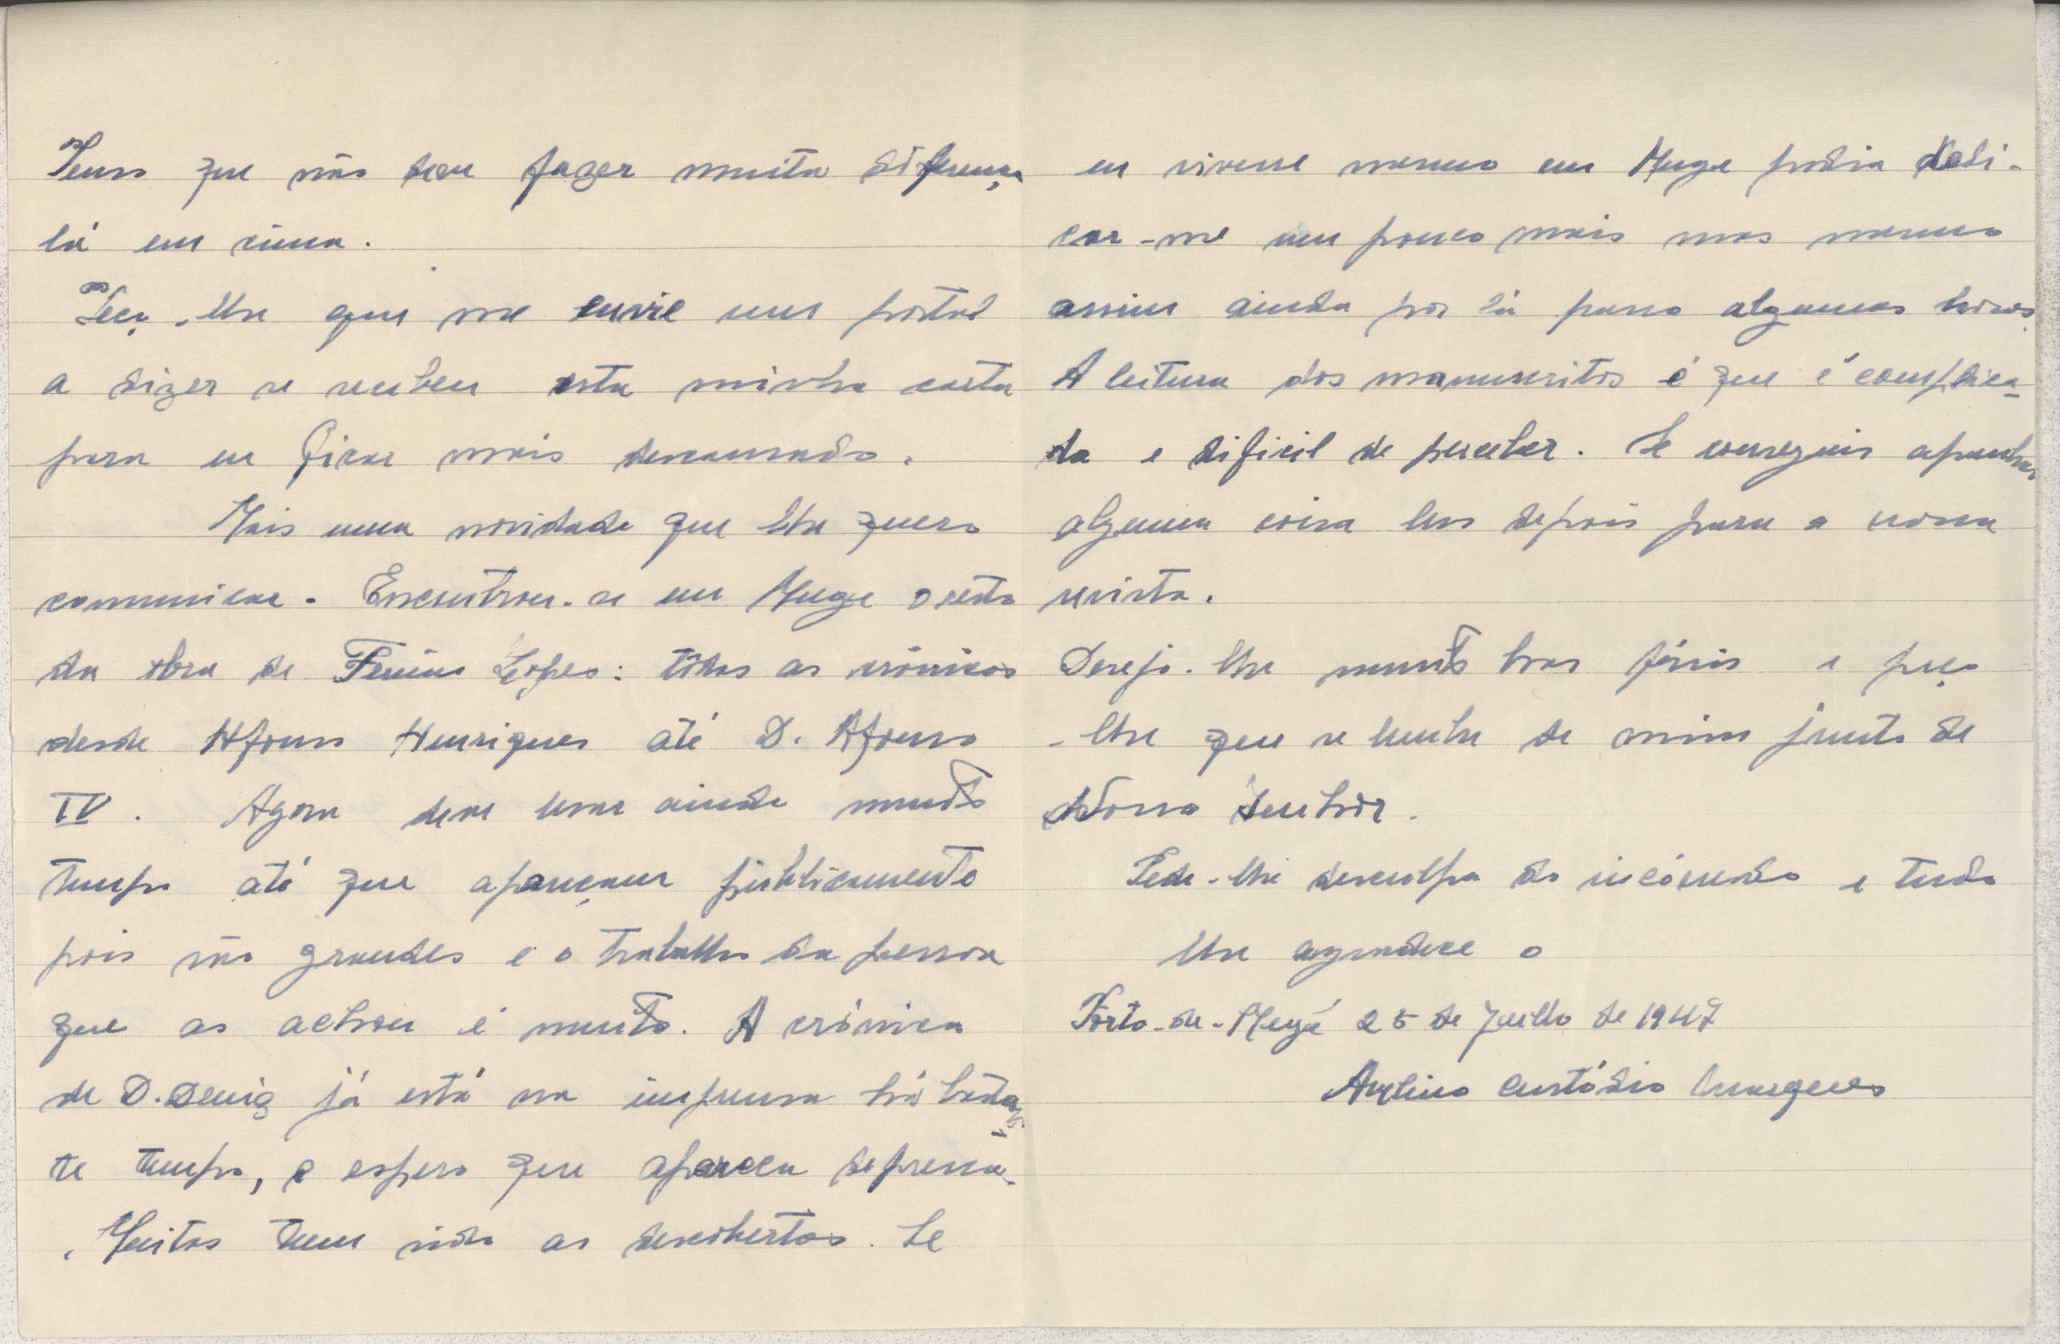 Penso que não deve fazer muita diferença
lá em cima.
Peço-lhe que me envie um postal
a dizer se recebeu esta minha carta
para eu ficar mais descansado.
Mais uma novidade que lhe quero
comunicar. Encontrou-se em Muge o resto
da obra de Fernão Lopes: tôdas as crónicas
desde Afonso Henriques até D. Afonso
IV. Agora deve levar ainda muito
tempo até que apareçam publicamente
pois são grandes e o trabalho da pessoa
que as achou é muito. A crónica
de D. Deniz já está na imprensa há bastan-
te tempo, e espero que apareça depressa.
Muitas tem sido as descobertas. Se
eu vivesse mesmo em Muge podia dedi-
car-me um pouco mais mas mesmo
assim ainda por lá passo algumas horas.
A leitura dos manuscritos é que é complica-
da e dificil de perceber. Se conseguir apanhar
alguma coisa será depois para a nossa
revista.
Desejo-lhe muito boas férias e peço
-lhe que se lembre de mim junto de
Nosso Senhor.
Pede-lhe desculpa do incómodo e tudo
lhe agradece o
Porto-de-Muge 25 de Julho de 1947
Avelino Custódio